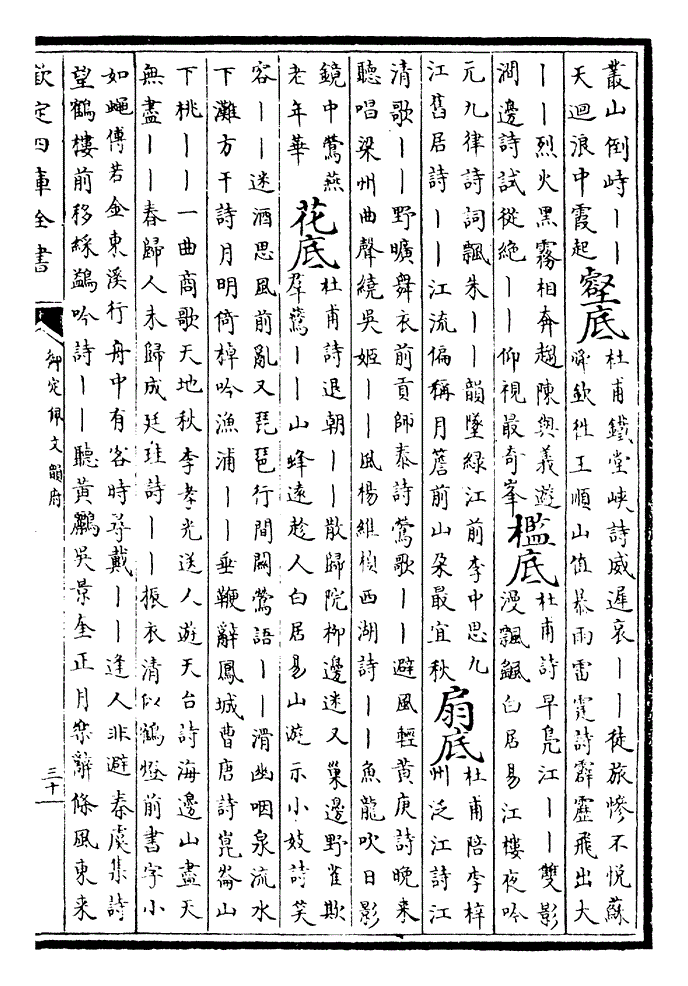 叢山倒峙丨丨
天迴浪中霞起
壑底
杜甫鐵堂峽詩威遲哀丨丨徒旅慘不悅蘇
舜欽往王順山值暴雨雷霆詩霹靂飛出大
丨丨烈火黑霧相奔趨陳與義遊
澗邊詩試從絶丨丨仰視最奇峯
檻底
杜甫詩早鳧江丨丨雙影
漫飄颻白居易江樓夜吟
元九律詩詞飄朱丨丨韻墜綠江前李中思九
江舊居詩丨丨江流偏稱月簷前山朶最宜秋
扇底
杜甫陪李梓
州泛江詩江
清歌丨丨野曠舞衣前貢師泰詩鶯歌丨丨避風輕黄庚詩晚来
聽唱梁州曲聲繞吳姬丨丨風楊維楨西湖詩丨丨魚龍吹日影
鏡中鶯燕
老年華
花底
杜甫詩退朝丨丨散歸院柳邊迷又巢邊野雀欺
羣鶯丨丨山蜂遠趁人白居易山遊示小妓詩笑
容丨丨迷酒思風前亂又琵琶行間關鶯語丨丨滑幽咽泉流水
下灘方干詩月明倚棹吟漁浦丨丨垂鞭辭鳳城曹唐詩崑崙山
下桃丨丨一曲商歌天地秋李孝光送人遊天台詩海邊山盡天
無盡丨丨春歸人未歸成廷珪詩丨丨振衣清似鶴燈前書字小
如蠅傅若金東溪行舟中有客時尋戴丨丨逢人非避秦虞集詩
望鶴樓前移綵鷁吟詩丨丨聽黄鸝吳景奎正月樂辭條風東来
欽定四庫全書
御定佩文韻府
三十